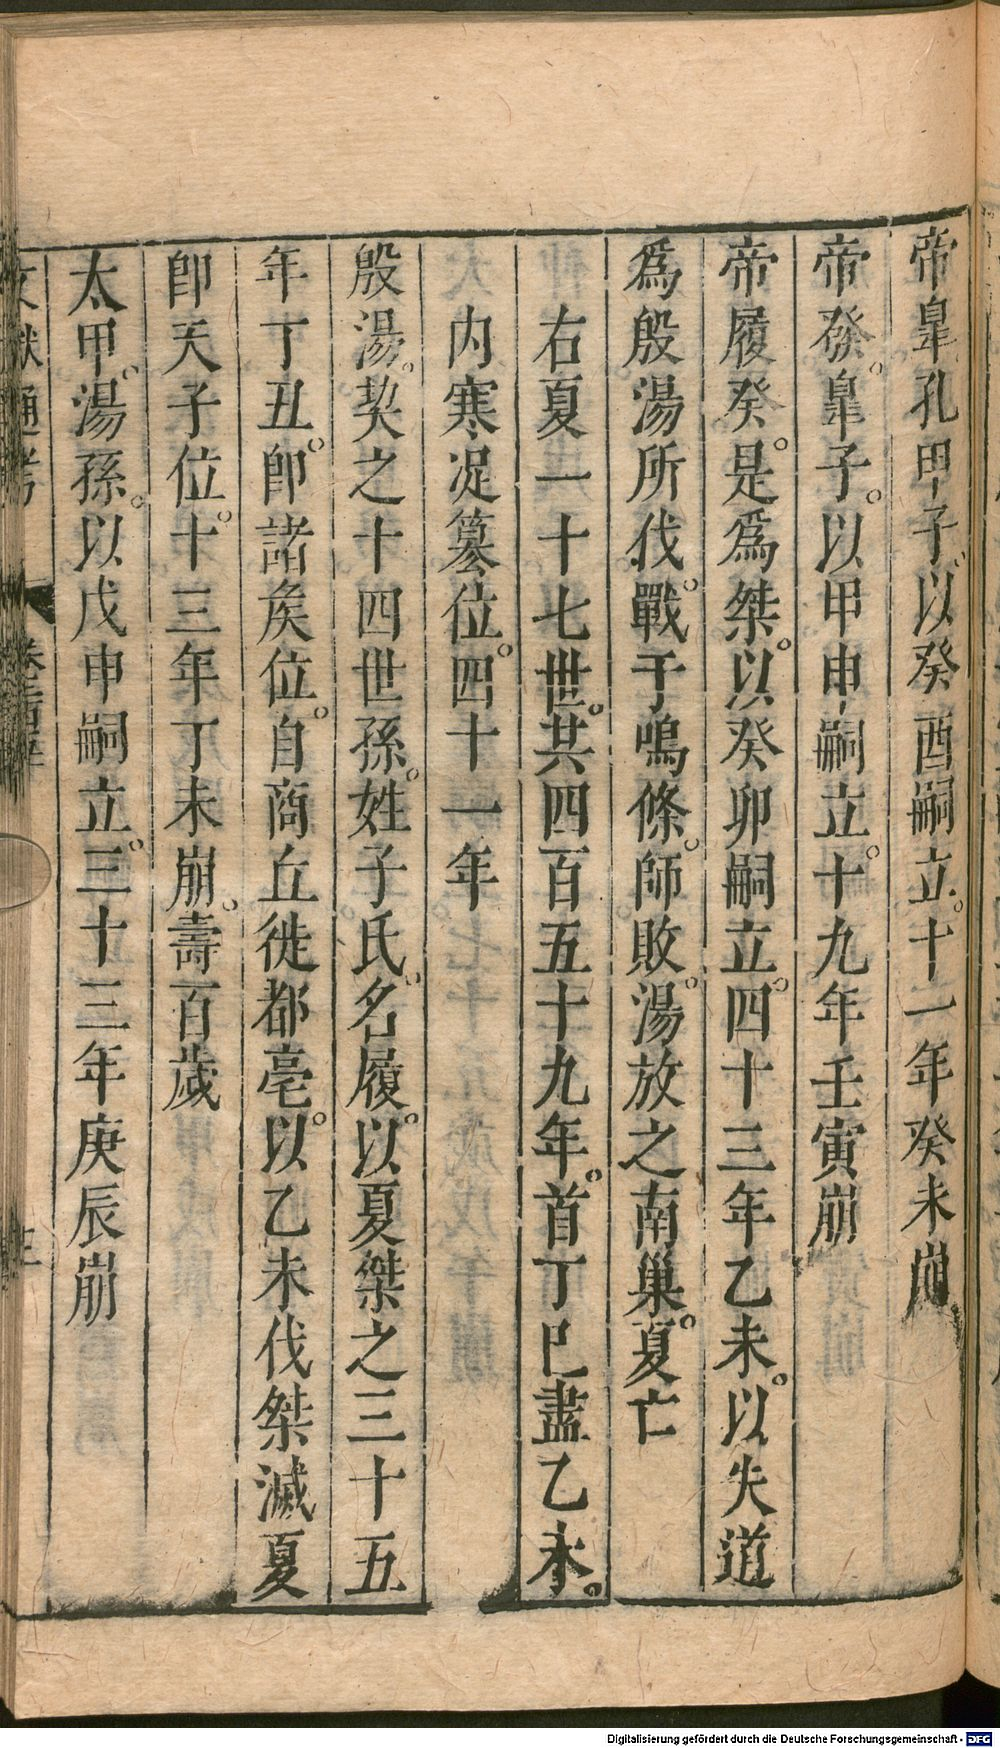 帝皐孔甲子以癸酉嗣立。十一年癸未崩
帝發。皐子。以甲申嗣立。十九年壬寅崩
帝履癸。是爲桀。以癸卯嗣立。四十三年乙未。以失道
爲殷湯所伐。戰于鳴條。師敗。湯放之南巢。夏亡
右夏一十七世。共四百五十九年。首丁巳盡乙未。
内寒浞簒位。四十一年
殷湯。契之十四世孫。姓子氏。名履。以夏桀之三十五
年丁丑。卽諸矦位。自商丘徙都亳。以乙未伐桀滅夏
卽天子位。十三年丁未崩。壽百歲
太甲。湯孫。以戊申嗣立。三十三年庚辰崩
文獻通考
Digitalisierung gefördert durch die Deutsche Forschungsgemeinschaft - DFG